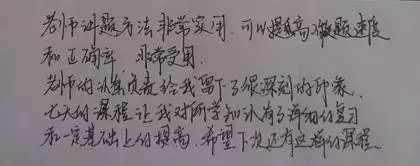 老师讲题方法非常实用，可以提高做题速度
和正确率，非常受用。
老师的认真负责给我留下了很深刻的印象，
七天的课程让我对所学知识有了详细的复习
和一定基础上的提高，希望下次还有这样的课程